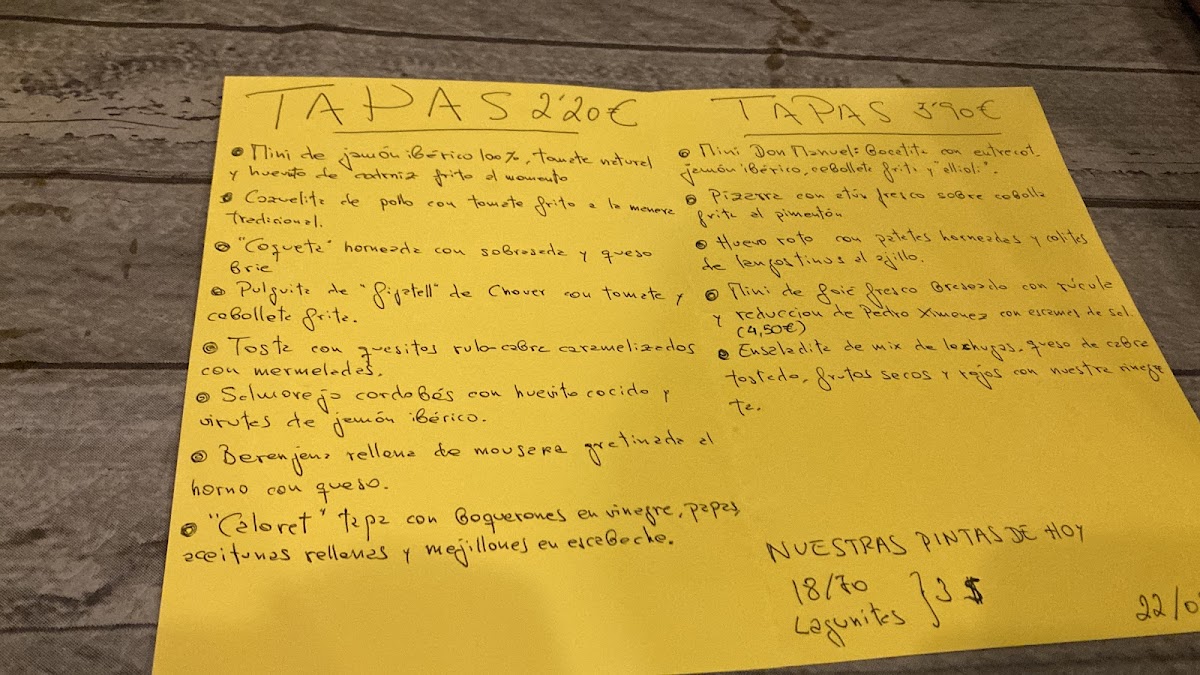 TAPAS 2'20€
• Mini de jamón ibérico 100%, tomate natural
y huevito de codorniz frito al momento
• Cazuelita de pollo con tomate frito a la manera
tradicional.
• "Coqueta" horneada con sobrasada y queso
brie
• Pulguita de "figatell" de Chover con tomate y
cebolleta frita.
• Tosta con quesitos rulo-cabra caramelizados
con mermeladas.
• Salmorejo cordobés con huevito cocido y
virutas de jamón ibérico.
• Berenjena rellena de mousaka gratinada al
horno con queso.
• "Caloret" tapa con boquerones en vinagre, papas,
aceitunas rellenas y mejillones en escabeche.
TAPAS 3'90€
• Mini Don Manuel: Bocatita con entrecot,
jamón ibérico, cebolleta frita y "allioli".
• Pizarra con atún fresco sobre cebolla
frita al pimentón
• Huevo roto con patatas horneadas y colitas
de langostinos al ajillo.
• Mini de foié fresco braseado con rúcula
y reduccion de Pedro Ximenez con escamas de sal.
(4,50€)
• Ensaladita de mix de lechugas, queso de cabra
tostado, frutos secos y rojos con nuestra vinagre
ta.
NUESTRAS PINTAS DE HOY
18/70
Lagunitas } 3 $
22/0